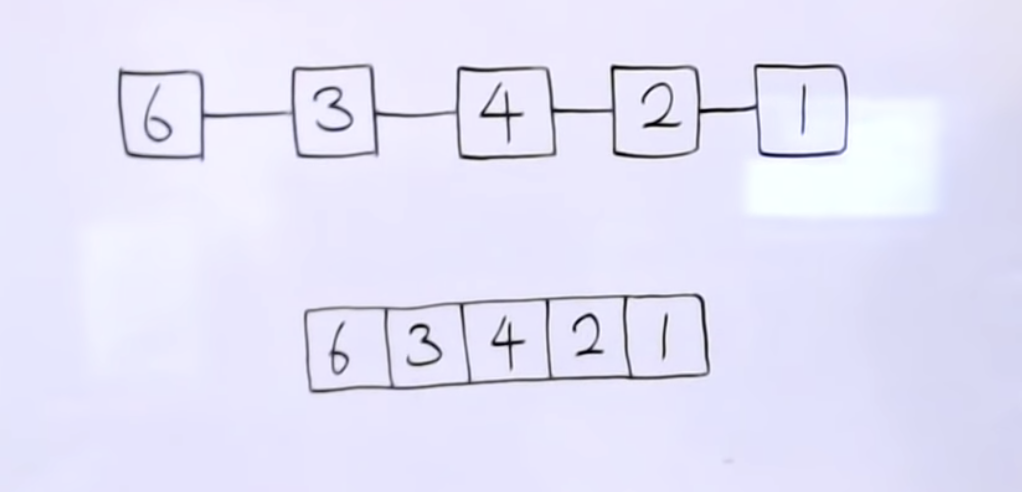 6 3 4 2 1
6 3 4 2 1